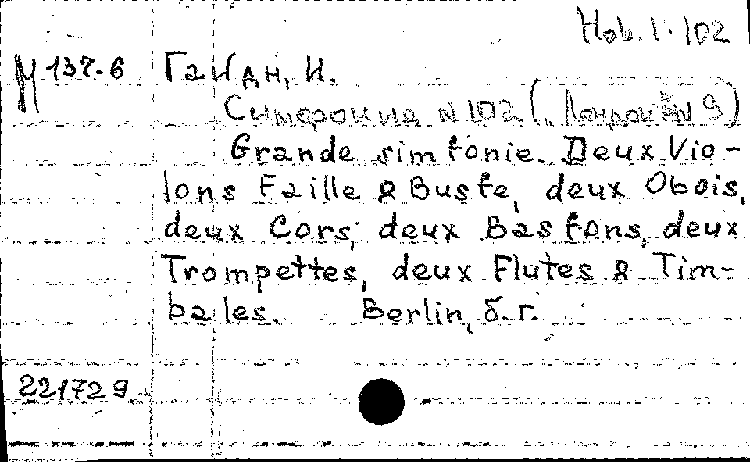 Hob. I. 102
М 137-6 Гайдн, И.
Симфония N 102 (Лондонская N 9)
Grande simfonie. Deux Vio-
lons Faille & Buste, deux Obois,
deux Cors, deux Basfons, deux
Trompettes, deux Flutes & Tim-
bales. Berlin, б.г.
221729